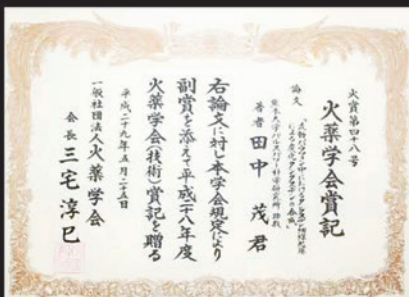 火賞第四十八号
火薬学会賞記
論文
著者 田中 茂 君
右論文に対し本学会規定により
副賞を添えて平成二十八年度
火薬学会(技術)賞記を贈る
平成二十九年五月二十五日
一般社団法人火薬学会
会長 三宅淳巳